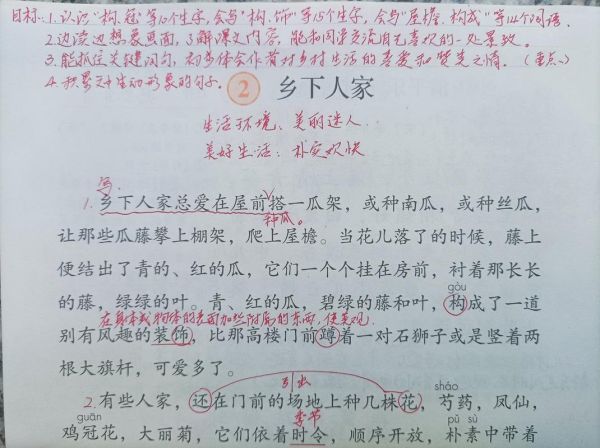 目标：1.认识"构、冠"等10个生字，会写"构、饰"等15个生字，会写"屋檐、构成"等14个词语.
2.边读边想象画面，了解课文内容，能和同学交流自己喜欢的一处景致.
3.能抓住关键词句，初步体会作者对乡村生活的喜爱和赞美之情.（重点）
4.积累文中生动形象的句子.
2 乡下人家
生活环境：美丽迷人
美好生活：朴实欢快
写.
1.乡下人家总爱在屋前搭一瓜架，或种南瓜，或种丝瓜，
种瓜。
让那些瓜藤攀上棚架，爬上屋檐。当花儿落了的时候，藤上
便结出了青的、红的瓜，它们一个个挂在房前，衬着那长长
gòu
的藤，绿绿的叶。青、红的瓜，碧绿的藤和叶，构成了一道
在身体或物体的表面加些附属的东西，使美观.
别有风趣的装饰，比那高楼门前蹲着一对石狮子或是竖着两
根大旗杆，可爱多了。
引出
sháo
2.有些人家，还在门前的场地上种几株花，芍药，凤仙，
guān
季节
pǔ sù
鸡冠花，大丽菊，它们依着时令，顺序开放，朴素中带着